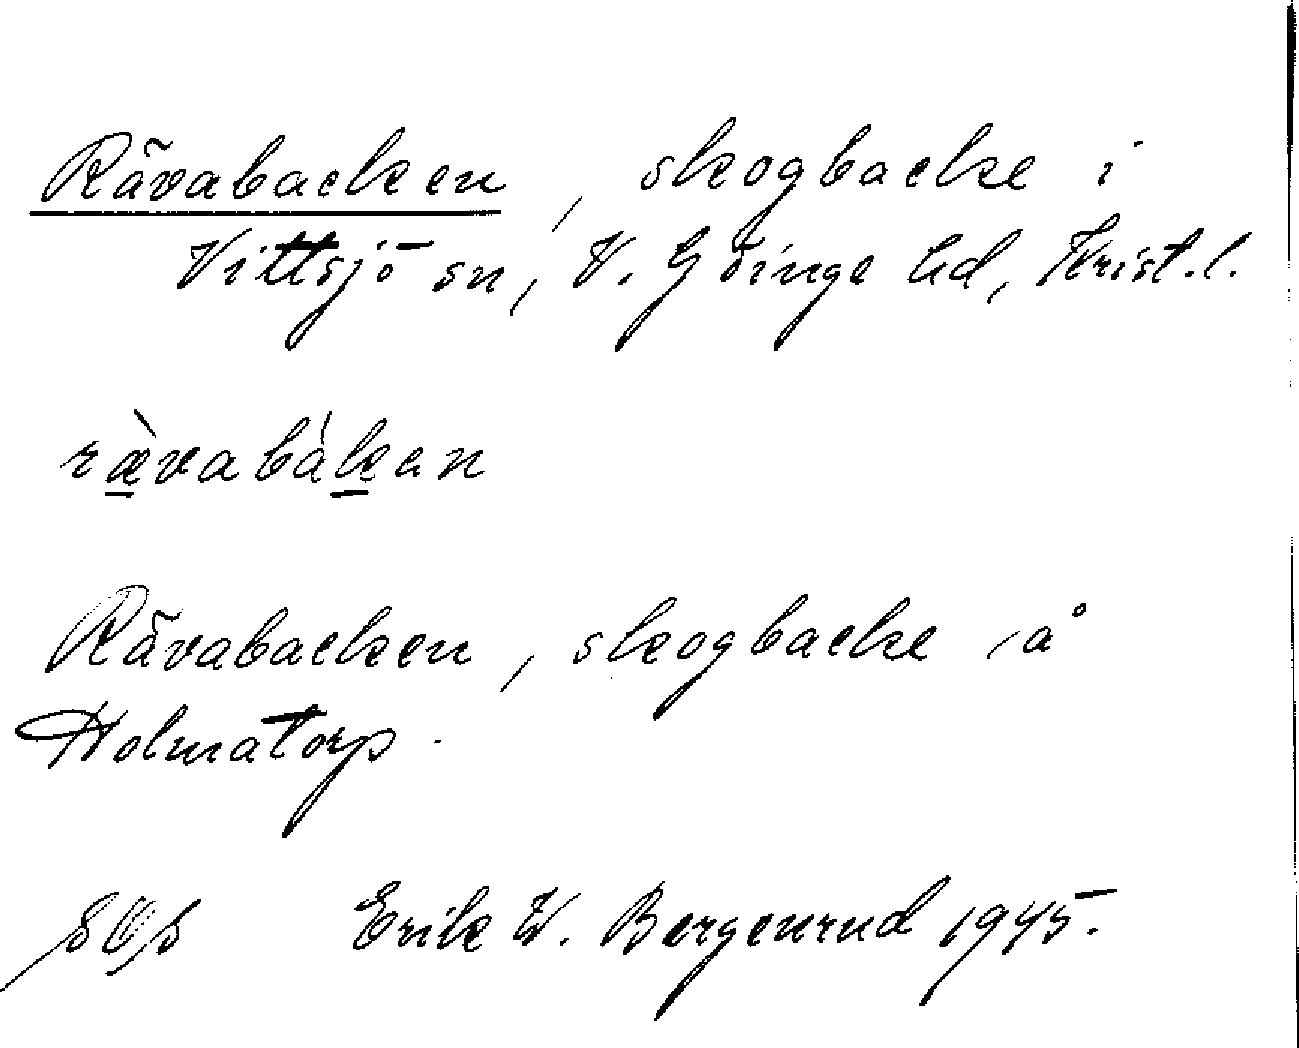 Rävabacken, skogbacke i
Vittsjö sn, V. Göinge hd, Krist. l.
rævabàkan
Rävabacken, skogbacke å
Holmatorp.
Erik W. Bergenrud 1945.